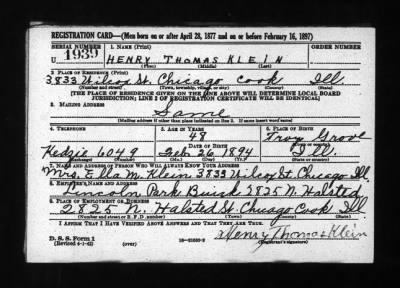 REGISTRATION CARD—(Men born on or after April 28, 1877 and on or before February 16, 1897)
SERIAL NUMBER 1. NAME (Print) ORDER NUMBER
U 1939 HENRY THOMAS KLEIN
(First) (Middle) (Last)
2. PLACE OF RESIDENCE (Print)
3833 Wilcox St. Chicago Cook Ill
(Number and street) (Town, township, village, or city) (County) (State)
[THE PLACE OF RESIDENCE GIVEN ON THE LINE ABOVE WILL DETERMINE LOCAL BOARD
JURISDICTION; LINE 2 OF REGISTRATION CERTIFICATE WILL BE IDENTICAL]
3. MAILING ADDRESS
Same
[Mailing address if other than place indicated on line 2. If same insert word same]
4. TELEPHONE 5. AGE IN YEARS 6. PLACE OF BIRTH
48 Troy Grove
DATE OF BIRTH (Town or county)
Kedzie 6049 Feb. 26 1894 Ill.
(Exchange) (Number) (Mo.) (Day) (Yr.) (State or country)
7. NAME AND ADDRESS OF PERSON WHO WILL ALWAYS KNOW YOUR ADDRESS
Mrs. Ella M. Klein 3833 Wilcox St. Chicago Ill.
8. EMPLOYER'S NAME AND ADDRESS
Lincoln Park Buick 2825 N. Halsted
9. PLACE OF EMPLOYMENT OR BUSINESS
2825 N. Halsted St. Chicago Cook Ill
(Number and street or R. F. D. number) (Town) (County) (State)
I AFFIRM THAT I HAVE VERIFIED ABOVE ANSWERS AND THAT THEY ARE TRUE.
Henry Thomas Klein
D. S. S. Form 1
(Revised 4-1-42) (over) (Registrant's signature)